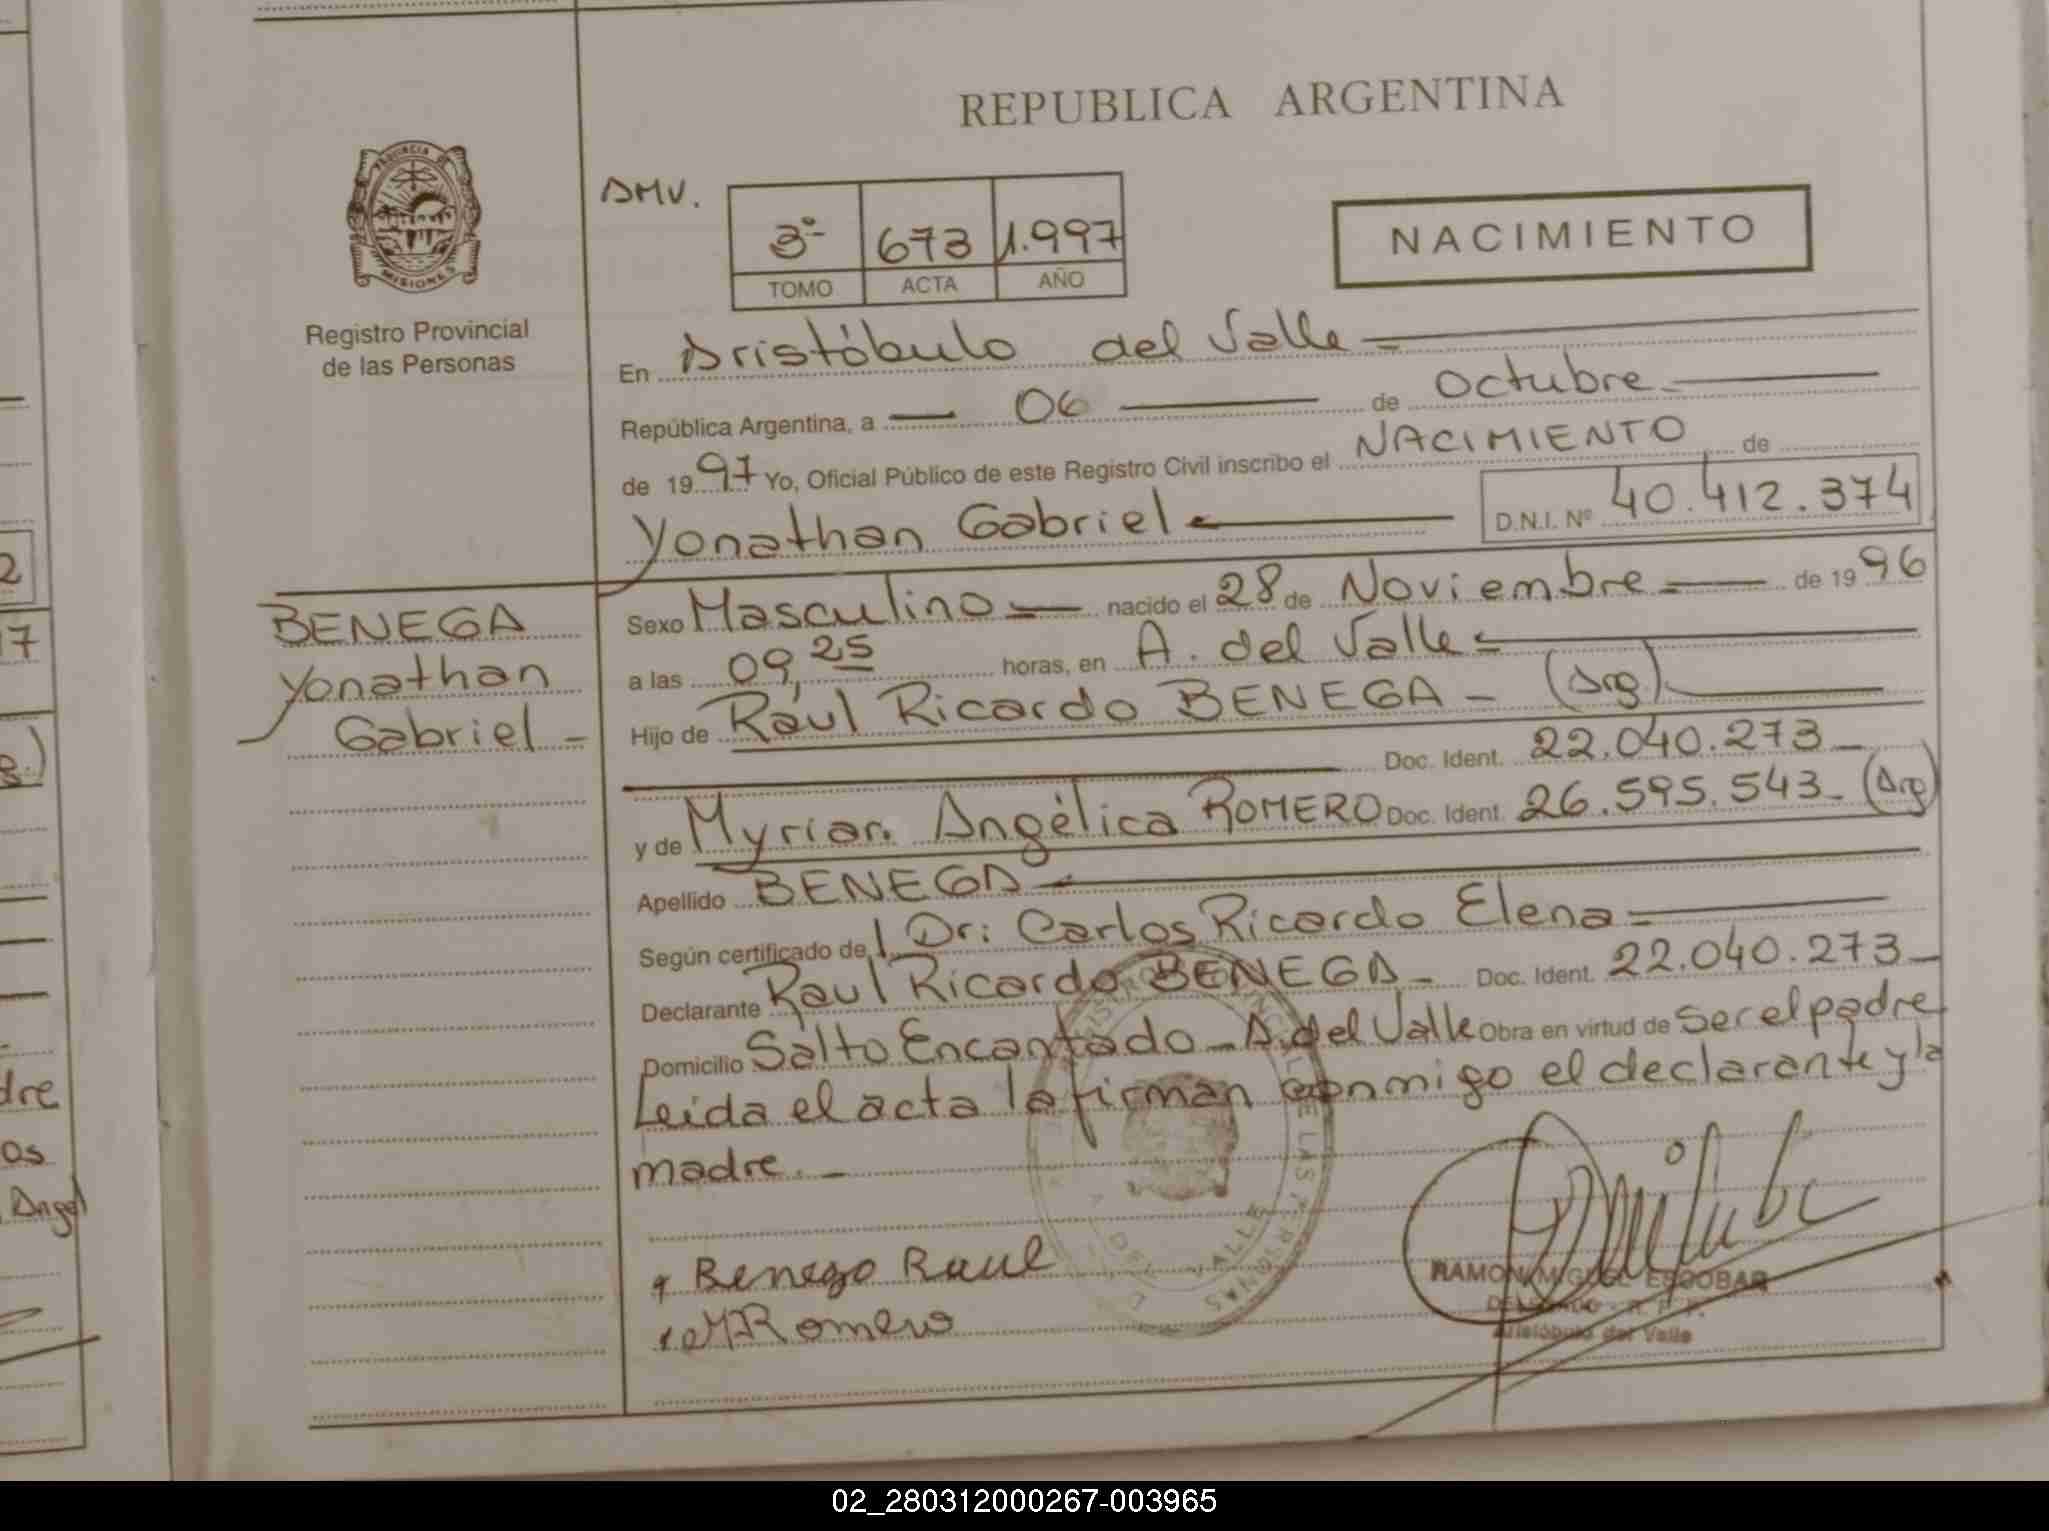 REPUBLICA ARGENTINA
PROVINCIA DE
MISIONES
Registro Provincial
de las Personas
AMV.
3º 673 1.997
TOMO ACTA AÑO
NACIMIENTO
En Aristóbulo del Valle
República Argentina, a 06 de Octubre
de 1997 Yo, Oficial Público de este Registro Civil inscribo el NACIMIENTO de
Yonathan Gabriel D.N.I. Nº 40.412.374
BENEGA
Yonathan
Gabriel
Sexo Masculino nacido el 28 de Noviembre de 1996
a las 09,25 horas, en A. del Valle
Hijo de Raúl Ricardo BENEGA - (Arg)
Doc. Ident. 22.040.273
y de Myrian Angélica ROMERO Doc. Ident. 26.595.543 - (Arg)
Apellido BENEGA
Según certificado de l Dr: Carlos Ricardo Elena
Declarante Raul Ricardo BENEGA - Doc. Ident. 22.040.273
Domicilio Salto Encantado - A. del Valle Obra en virtud de ser el padre
Leida el acta la firman conmigo el declarante y la
madre. -
Benega Raul
Romero
RAMON MIGUEL ESCOBAR
Aristóbulo del Valle
2
17
dre
os
Angel
02_280312000267-003965